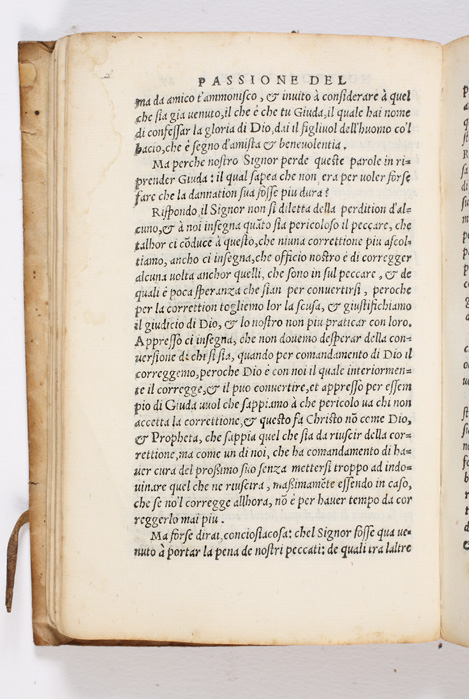 PASSIONE DEL
ma da amico t'ammonisco, & inuito à considerare à quel
che sia gia uenuto, il che è che tu Giuda, il quale hai nome
di confessar la gloria di Dio, dai il figliuol dell'huomo co'l
bacio, che è segno d'amista & beneuolentia.
Ma perche nostro Signor perde queste parole in ri-
prender Giuda: il qual sapea che non era per uoler forse
fare che la dannation sua fosse piu dura?
Rispondo, il Signor non si diletta della perdition d'al-
cuno, & à noi insegna quãto sia pericoloso il peccare, che
talhor ci cõduce à questo, che niuna correttione piu ascol-
tiamo, ancho ci insegna, che officio nostro è di corregger
alcuna uolta anchor quelli, che sono in sul peccare, & de
quali è poca speranza che sian per conuertirsi, peroche
per la correttion togliemo lor la scusa, & giustifichiamo
il giudicio di Dio, & lo nostro non piu praticar con loro.
Appresso ci insegna, che non douemo desperar della con-
uersione di chi si sia, quando per comandamento di Dio il
correggemo, peroche Dio è con noi il quale interiormen-
te il corregge, & il puo conuertire, et appresso per essem
pio di Giuda uuol che sappiamo à che pericolo ua chi non
accetta la correttione, & questo fa Christo nõ come Dio,
& Propheta, che sappia quel che sia da riuscir della cor-
rettione, ma come un di noi, che ha comandamento di ha-
uer cura del prossimo suo senza mettersi troppo ad indo-
uinare quel che ne riuscira, massimamẽte essendo in caso,
che se no'l corregge allhora, nõ è per hauer tempo da cor
reggerlo mai piu.
Ma forse dirai, conciosiacosa: chel Signor fosse qua ue-
nuto à portar la pena de nostri peccati: de quali tra laltre